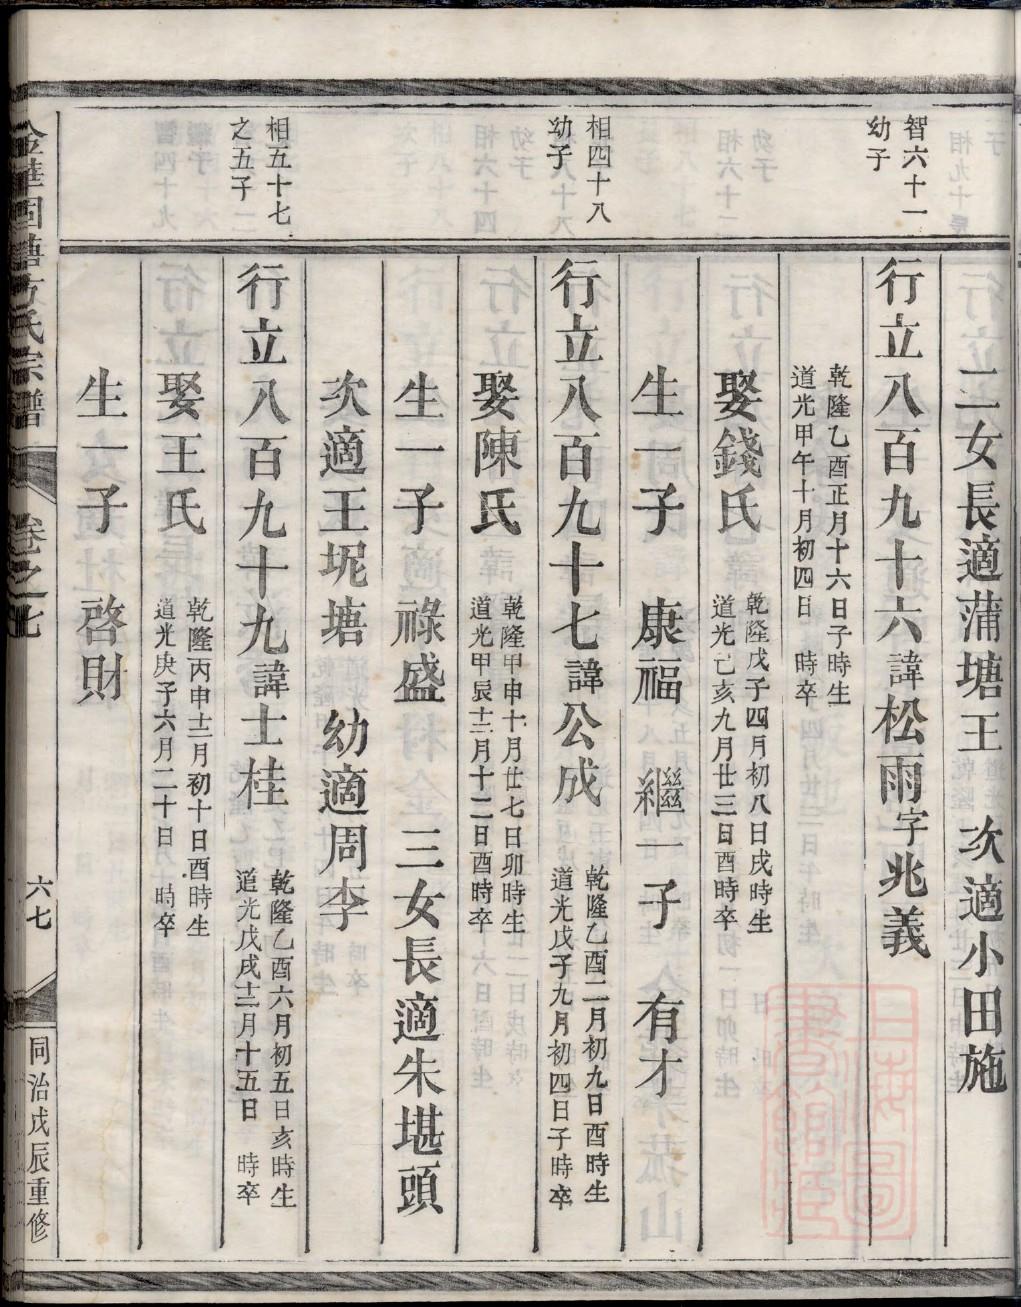 二女長適蒲塘王　次適小田施
智六十一
幼子
行立八百九十六諱松雨字兆義
乾隆乙酉正月十六日子時生
道光甲午十月初四日　時卒
娶錢氏
乾隆戊子四月初八日戌時生
道光己亥九月廿三日酉時卒
生一子　康福　繼一子　有才
相四十八
幼子
行立八百九十七諱公成
乾隆乙酉二月初九日酉時生
道光戊子九月初四日子時卒
娶陳氏
乾隆甲申十月廿七日卯時生
道光甲辰十二月十二日酉時卒
生一子　祿盛　三女長適朱堪頭
次適王坭塘　幼適周李
相五十七
之五子
行立八百九十九諱士桂
乾隆乙酉六月初五日亥時生
道光戊戌十二月十五日　時卒
娶王氏
乾隆丙申十二月初十日酉時生
道光庚子六月二十日　時卒
生一子　啓財
金華固塘方氏宗譜
卷之七
六七
同治戊辰重修